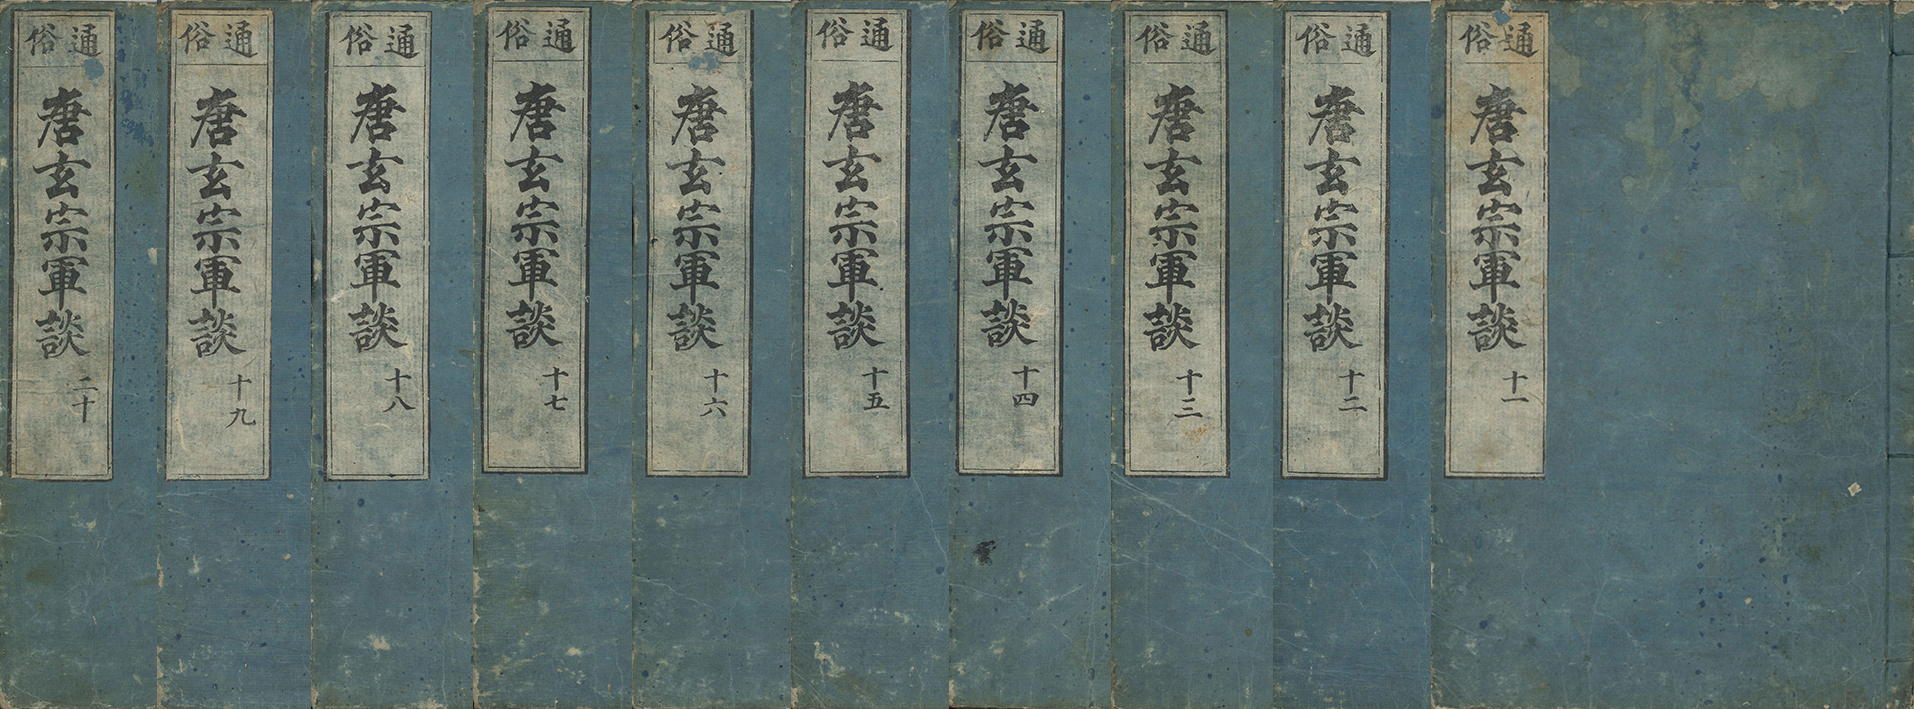 通俗
唐玄宗軍談
十一
通俗
唐玄宗軍談
十二
通俗
唐玄宗軍談
十三
通俗
唐玄宗軍談
十四
通俗
唐玄宗軍談
十五
通俗
唐玄宗軍談
十六
通俗
唐玄宗軍談
十七
通俗
唐玄宗軍談
十八
通俗
唐玄宗軍談
十九
通俗
唐玄宗軍談
二十